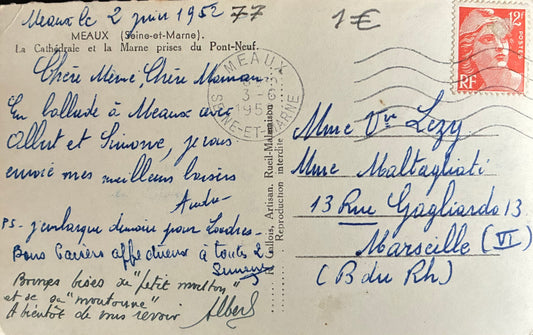 Meaux le 2 juin 1952 77
1€
MEAUX (Seine-et-Marne).
La Cathédrale et la Marne prises du Pont-Neuf.
12F
POSTES
RF
MEAUX
3-6
195
SEINE-ET-MARNE
Chère Mémé, Chère Maman
En ballade à Meaux avec
Albert et Simone, je vous
envoie mes meilleurs baisers
André
PS- j'embarque demain pour Londres-
Bons baisers affectueux à toutes 2
Simone
Bonnes bises du "petit mouton"
et de sa "moutonne"
A bientôt de vous revoir Albert
Gallois, Artisan, Rueil-Malmaison
Reproduction interdite
Mme Vve Lezy
Mme Maltagliati
13 Rue Gagliardo 13
Marseille (VI)
(B du Rh)